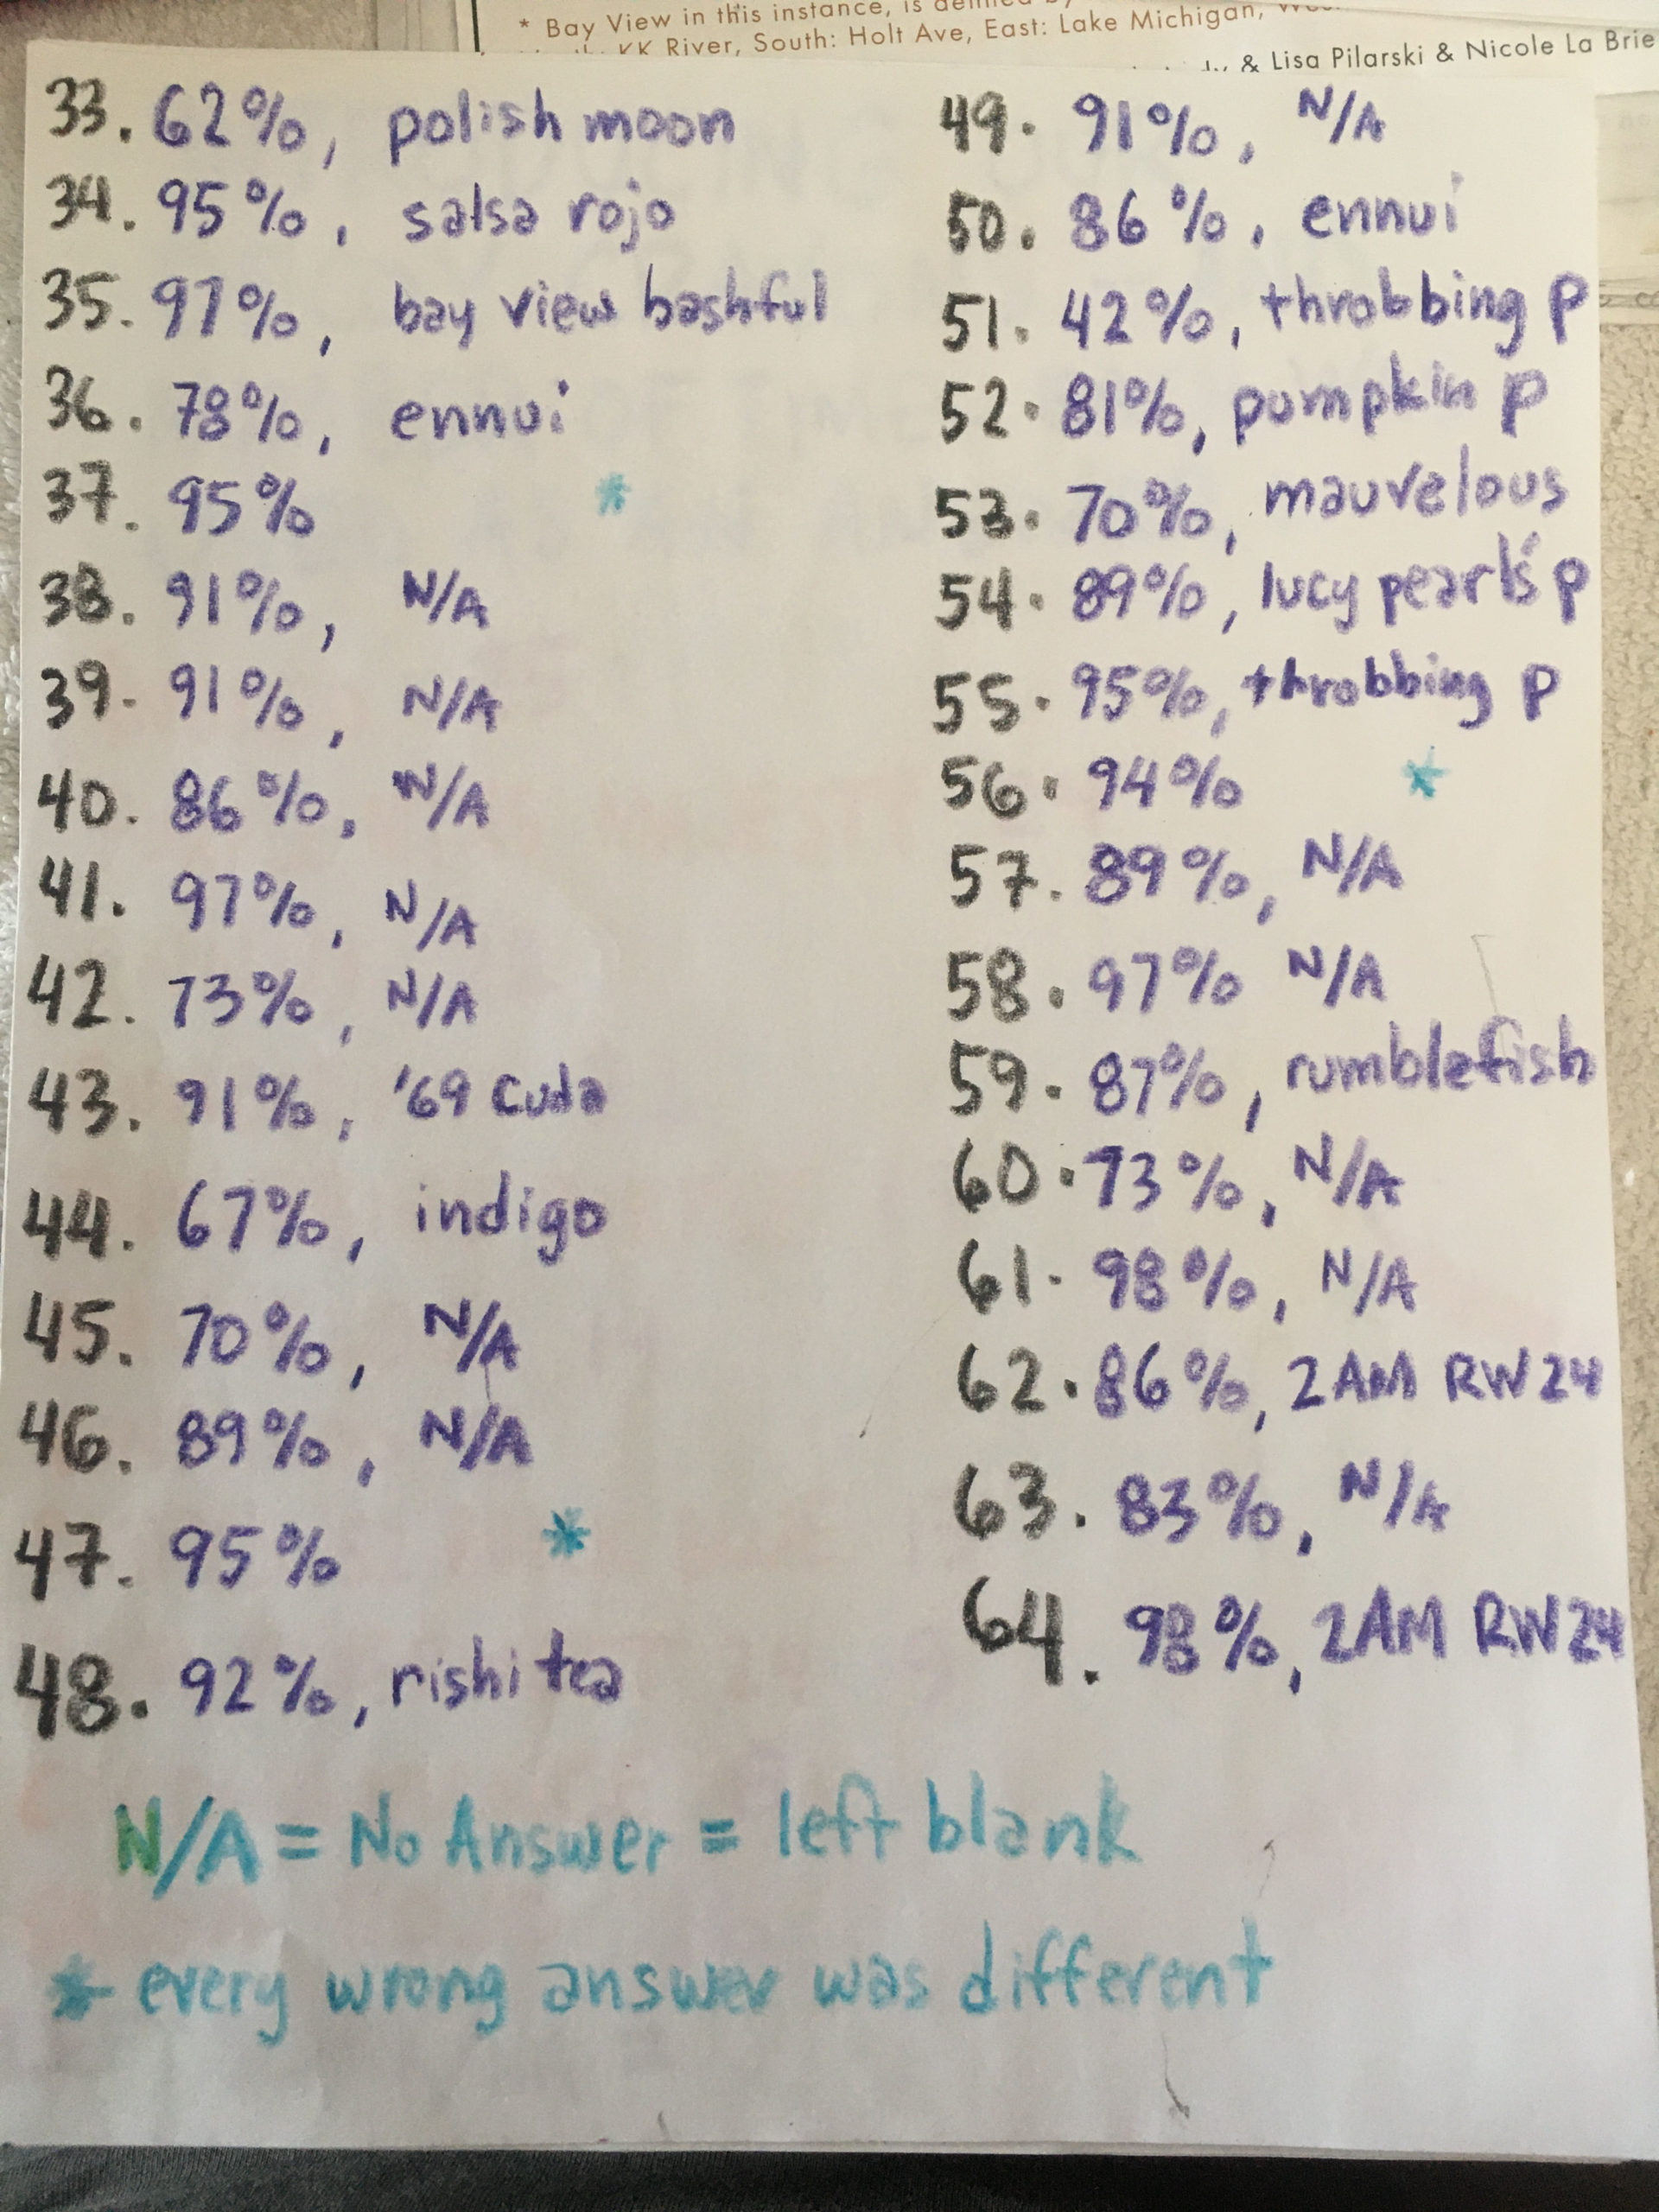 * Bay View in this instance, is
KK River, South: Holt Ave, East: Lake Michigan,
& Lisa Pilarski & Nicole La Brie
33. 62%, polish moon
34. 95%, salsa rojo
35. 97%, bay view bashful
36. 78%, ennui
37. 95% *
38. 91%, N/A
39. 91%, N/A
40. 86%, N/A
41. 97%, N/A
42. 73%, N/A
43. 91%, '69 Cuda
44. 67%, indigo
45. 70%, N/A
46. 89%, N/A
47. 95% *
48. 92%, rishi tea
49. 91%, N/A
50. 86%, ennui
51. 42%, throbbing P
52. 81%, pumpkin P
53. 70%, mauvelous
54. 89%, lucy pearl's P
55. 95%, throbbing P
56. 94% *
57. 89%, N/A
58. 97% N/A
59. 87%, rumblefish
60. 73%, N/A
61. 98%, N/A
62. 86%, 2AM RW24
63. 83%, N/A
64. 98%, 2AM RW24
N/A = No Answer = left blank
* every wrong answer was different